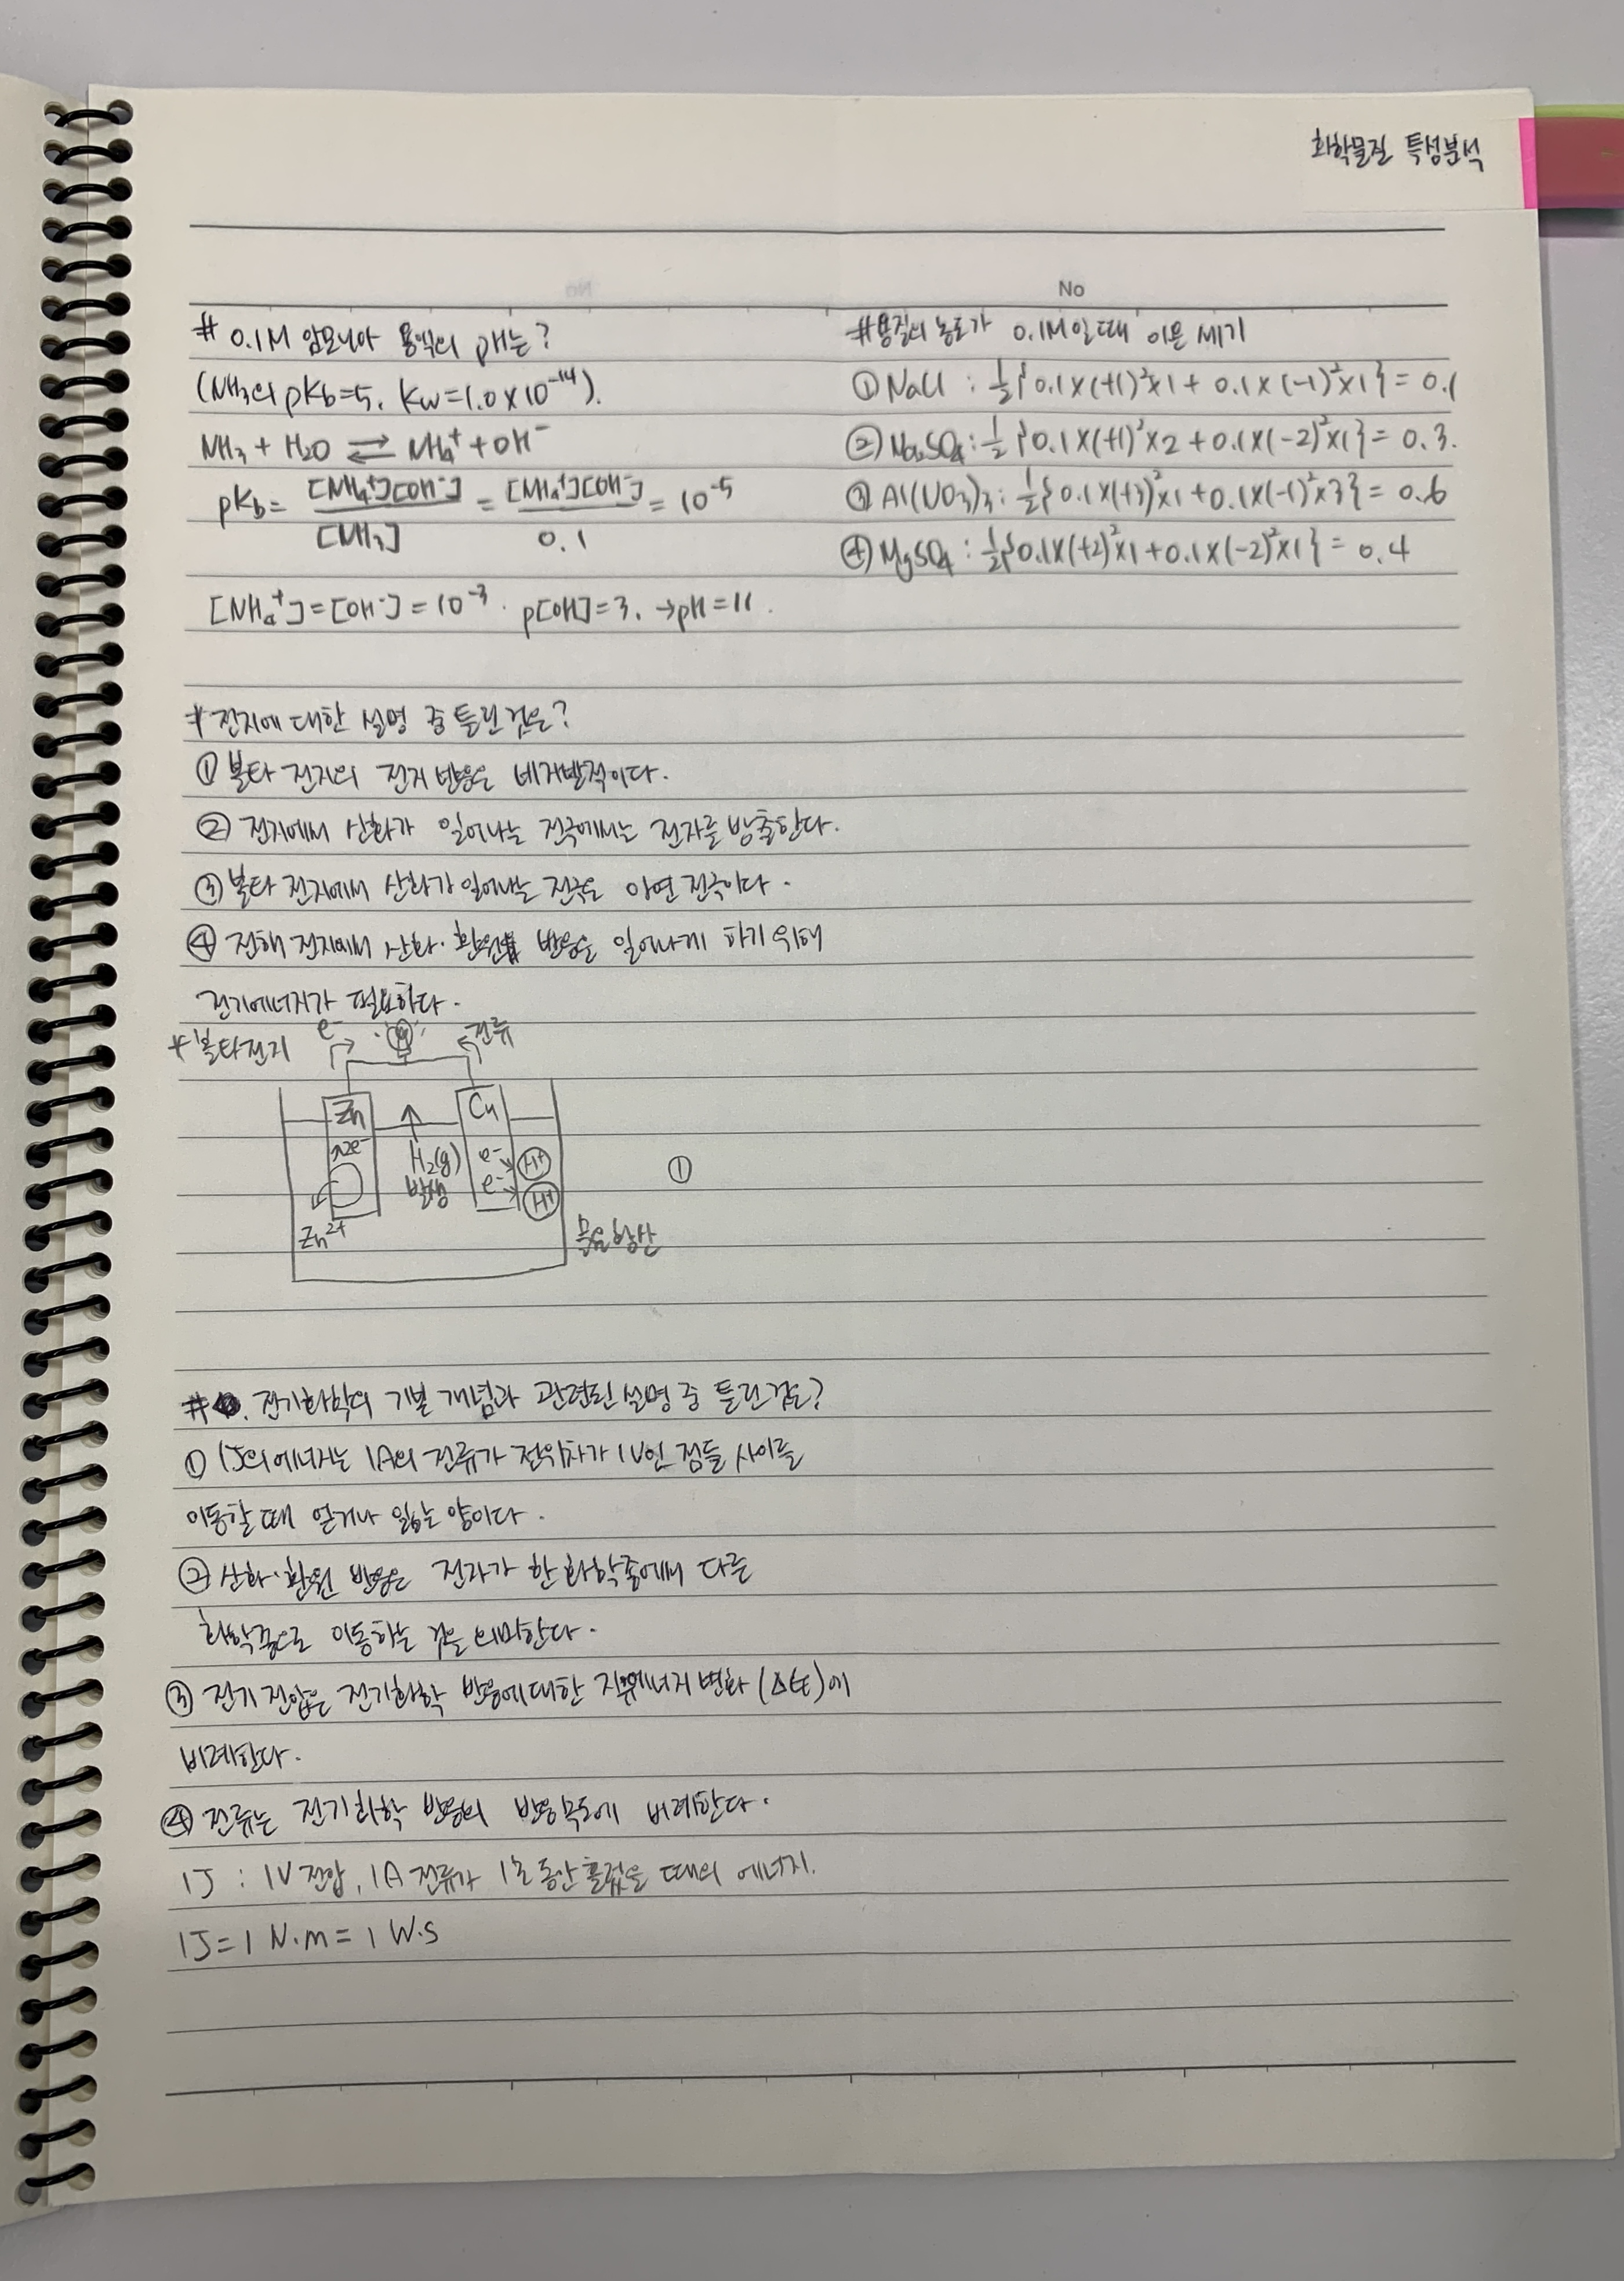 화학물질 특성분석
No
# 0.1M 암모니아 용액의 pH는?
(NH₃의 pKb=5, Kw=1.0×10⁻¹⁴).
NH₃ + H₂O ⇄ NH₄⁺ + OH⁻
pKb = [NH₄⁺][OH⁻]/[NH₃] = [NH₄⁺][OH⁻]/0.1 = 10⁻⁵
[NH₄⁺]=[OH⁻]=10⁻³. p[OH]=3. →pH=11.
#용질의 농도가 0.1M일 때 이온 세기
① NaCl : ½{0.1×(+1)²×1 + 0.1×(-1)²×1} = 0.1
② Na₂SO₄ : ½{0.1×(+1)²×2 + 0.1×(-2)²×1} = 0.3.
③ Al(NO₃)₃ : ½{0.1×(+3)²×1 + 0.1×(-1)²×3} = 0.6
④ MgSO₄ : ½{0.1×(+2)²×1 + 0.1×(-2)²×1} = 0.4
# 전지에 대한 설명 중 틀린 것은?
① 볼타 전지의 전지 반응은 비자발적이다.
② 전지에서 산화가 일어나는 전극에서는 전자를 방출한다.
③ 볼타 전지에서 산화가 일어나는 전극은 아연 전극이다.
④ 전해 전지에서 산화·환원 반응을 일어나게 하기 위해
전기에너지가 필요하다.
* 볼타전지
e⁻
전류
Zn
Cu
2e⁻
H₂(g)
발생
e⁻
e⁻
H⁺
H⁺
Zn²⁺
묽은황산
①
# 전기화학의 기본 개념과 관련된 설명 중 틀린 것은?
① 1J의 에너지는 1A의 전류가 전위차가 1V인 점들 사이를
이동할 때 얻거나 잃는 양이다.
② 산화·환원 반응은 전자가 한 화학종에서 다른
화학종으로 이동하는 것을 의미한다.
③ 전기 전압은 전기화학 반응에 대한 자유에너지 변화(ΔG)에
비례한다.
④ 전류는 전기화학 반응의 반응속도에 비례한다.
1J : 1V 전압, 1A 전류가 1초 동안 흘렀을 때의 에너지.
1J = 1 N·m = 1 W·s